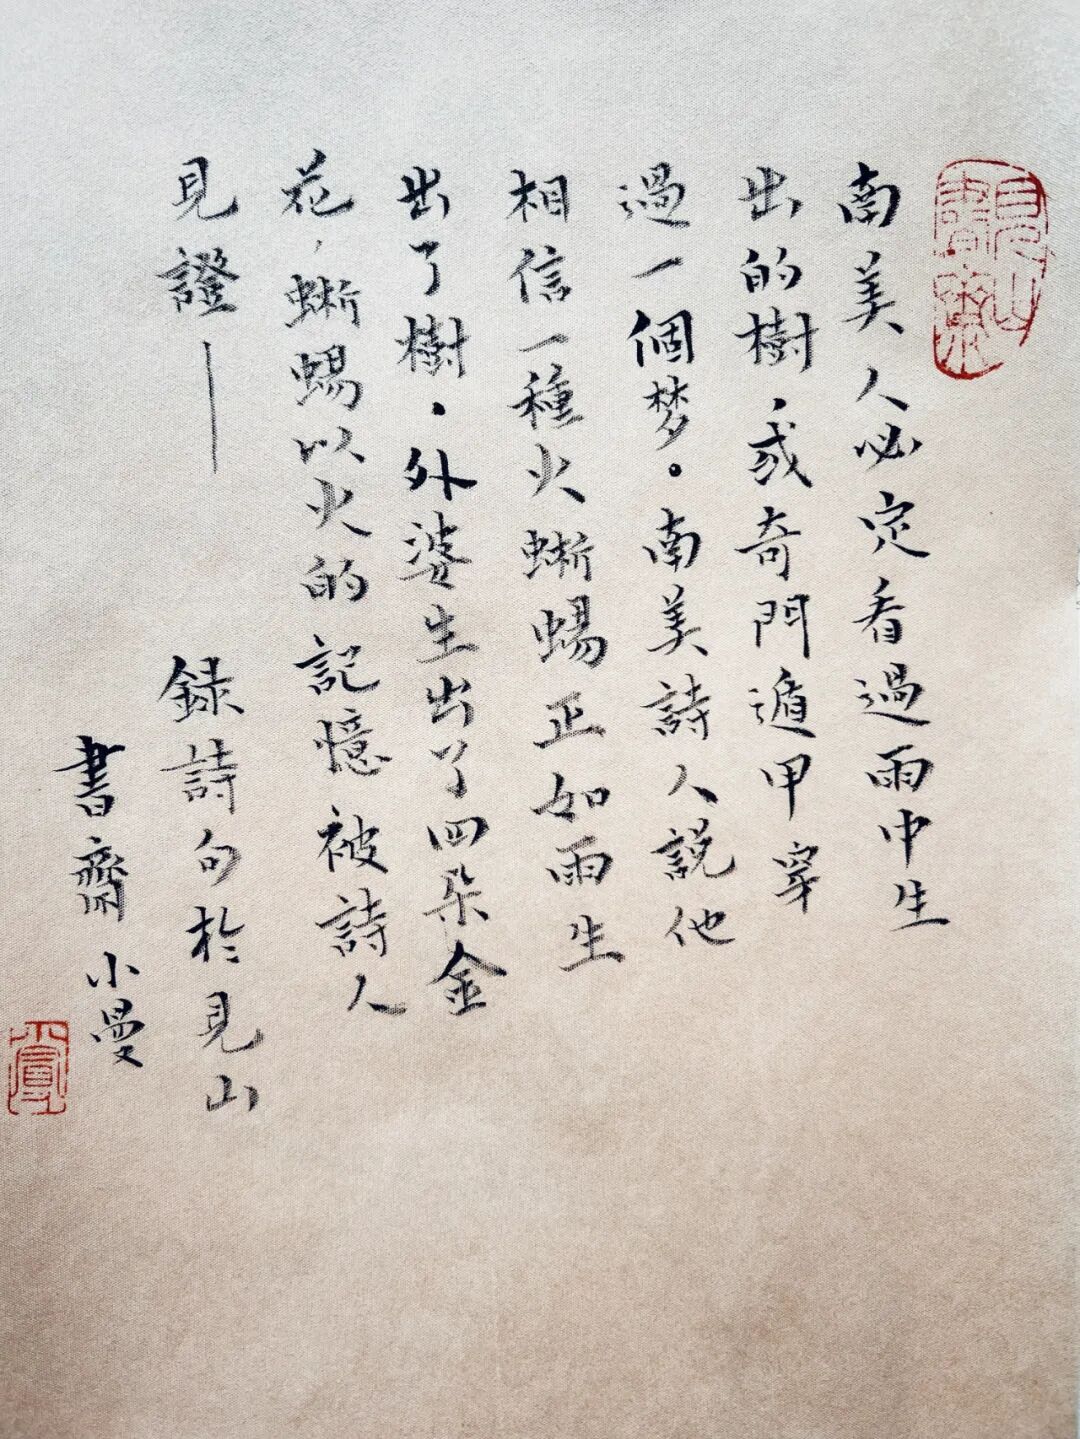 見山書齋
南美人必定看過雨中生
出的樹，或奇門遁甲穿
過一個梦。南美詩人說他
相信一種火蜥蜴正如雨生
出了樹．外婆生出了四朵金
花，蜥蜴以火的記憶被詩人
見證——
錄詩句於見山
書齋小曼